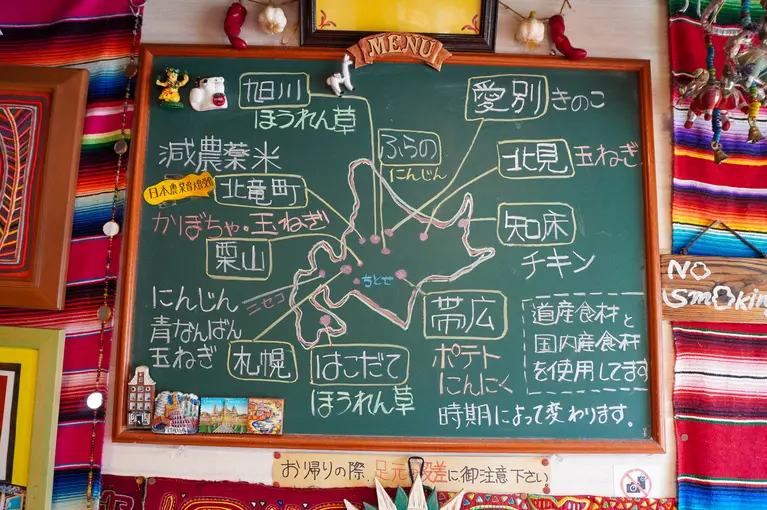 MENU
旭川
ほうれん草
愛別 きのこ
ふらの
にんじん
北見 玉ねぎ
減農薬米
北竜町
かぼちゃ・玉ねぎ
知床
チキン
栗山
ちとせ
ニセコ
にんじん
青なんばん
玉ねぎ
札幌
はこだて
ほうれん草
帯広
ポテト
にんにく
道産食材と
国内産食材
を使用してます
時期によって変わります.
NO
SMOKING
お帰りの際、足元の段差に御注意下さい